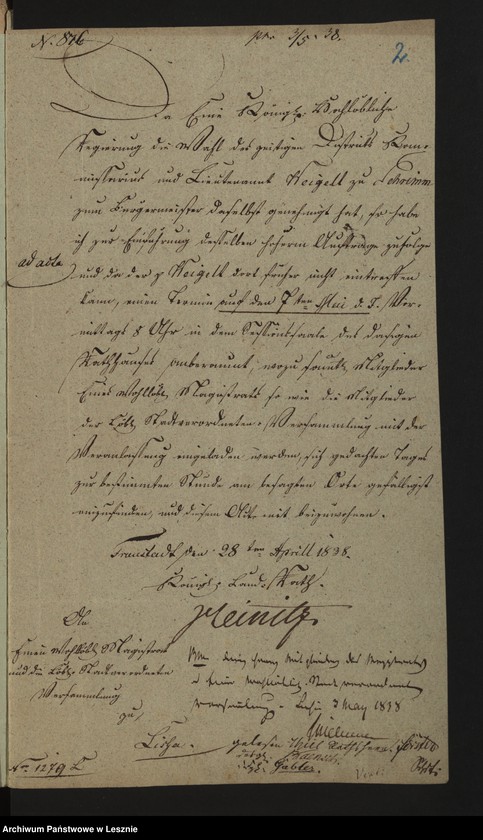 N. 816
pr. 3/5. 38.
2.
Da Eine Königl. Hochlöbliche
Regierung die Wahl des zeitigen Distrikts Kom-
missarius und Lieutenannt Weigelt zu Schrimm
zum Bürgermeister daselbst genehmigt hat, so habe
ich zur Einführung desselben höherm Auftrage zufolge
ad acta
und da der p Weigelt dort früher nicht eintreffen
kann, einen Termin auf den 7ten Mai d. J. Vor-
mittags 8 Uhr in dem Sessionssaale des dasigen
Rathhauses anberaumt, wozu sämtl. Mitglieder
Eines Wohllöbl. Magistrats so wie die Mitglieder
der Löbl. Stadtverordneten-Versammlung mit der
Veranlassung eingeladen werden, sich gedachten Tages
zur bestimmten Stunde am besagten Orte gefälligst
einzufinden, und diesem Akte mit beizuwohnen.
Fraustadt den 28ten Aprill 1838.
Königl. Land-Rath.
Heinitz
An
Einen Wohllöbl. Magistrat
und die Löbl. Stadtverordneten
Versammlung
zu
Lissa.
No 1279
den Herren Mitgliedern des Magistrats
Stadtverordneten
Versammlung. Lissa 3 May 1838
gelesen Thiel
Gabler.
Archiwum Państwowe w Lesznie